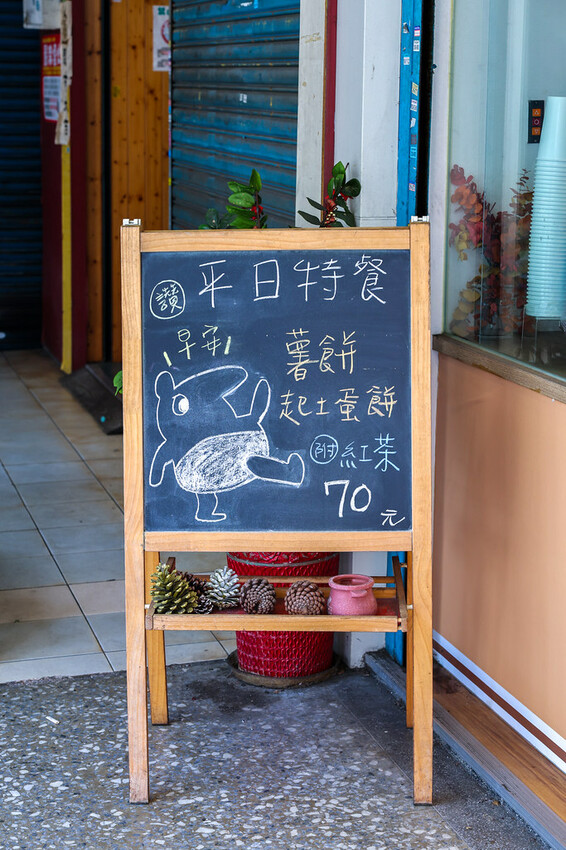 讚 平日特餐
早安
薯餅
起士蛋餅
附 紅茶
70元